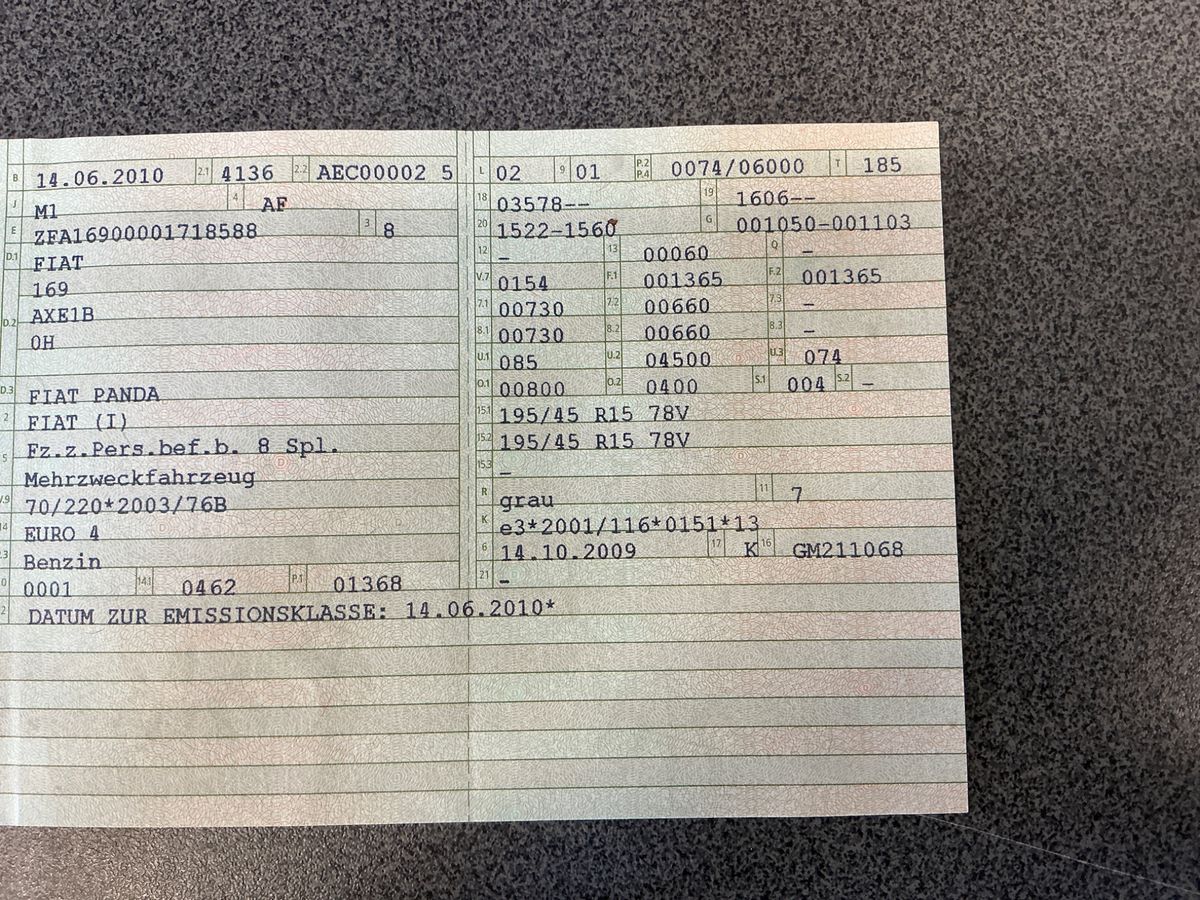 B 14.06.2010 2.1 4136 2.2 AEC00002 5
J M1 4 AF
E ZFA16900001718588 3 8
D.1 FIAT
169
D.2 AXE1B
0H
D.3 FIAT PANDA
2 FIAT (I)
5 Fz.z.Pers.bef.b. 8 Spl.
Mehrzweckfahrzeug
V.9 70/220*2003/76B
14 EURO 4
P.3 Benzin
10 0001 14.1 0462 P.1 01368
L 02 9 01 P.2 P.4 0074/06000 T 185
18 03578-- 19 1606--
20 1522-1560 G 001050-001103
12 – 13 00060 Q –
V.7 0154 F.1 001365 F.2 001365
7.1 00730 7.2 00660 7.3 –
8.1 00730 8.2 00660 8.3 –
U.1 085 U.2 04500 U.3 074
O.1 00800 O.2 0400 S.1 004 S.2 –
15.1 195/45 R15 78V
15.2 195/45 R15 78V
15.3 –
R grau 11 7
K e3*2001/116*0151*13
6 14.10.2009 17 K 16 GM211068
21 –
22 DATUM ZUR EMISSIONSKLASSE: 14.06.2010*